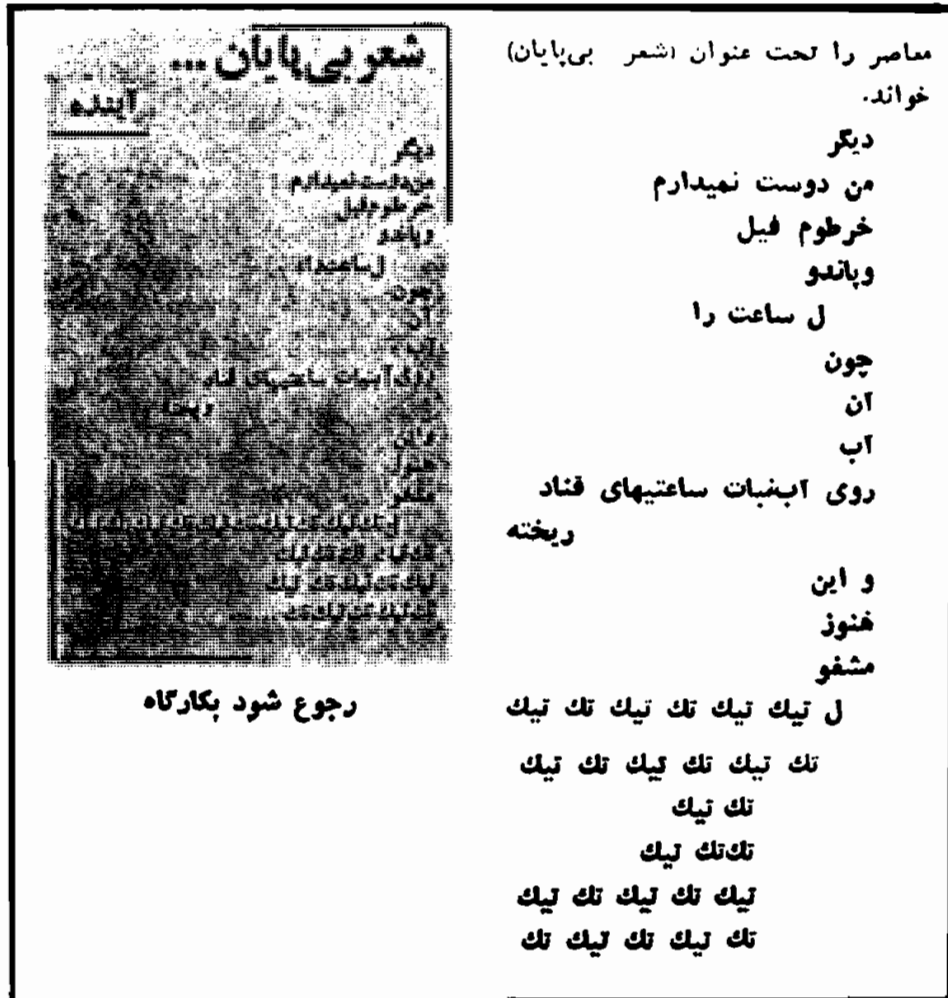 معاصر را تحت عنوان (شعر بی‌پایان)
خواند.
دیگر
من دوست نمیدارم
خرطوم فیل
وپاندو
ل ساعت را
چون
آن
آب
روی آب‌نبات ساعتیهای قناد
ریخته
و این
هنوز
مشغو
ل تیك تیك تك تیك تك تیك
تك تیك تك تیك تك تیك
تك تیك
تك‌تك تیك
تیك تك تیك تك تیك
تك تیك تك تیك تك
شعر بی‌پایان ...
آینده
دیگر
من‌دوست‌نمیدارم
خرطوم‌فیل
وپاندو
ل‌ساعت‌را
چون
آن
آب
روی آبنبات ساعتیهای قناد
ریخته
هنوز
مشغو
رجوع شود بکارگاه